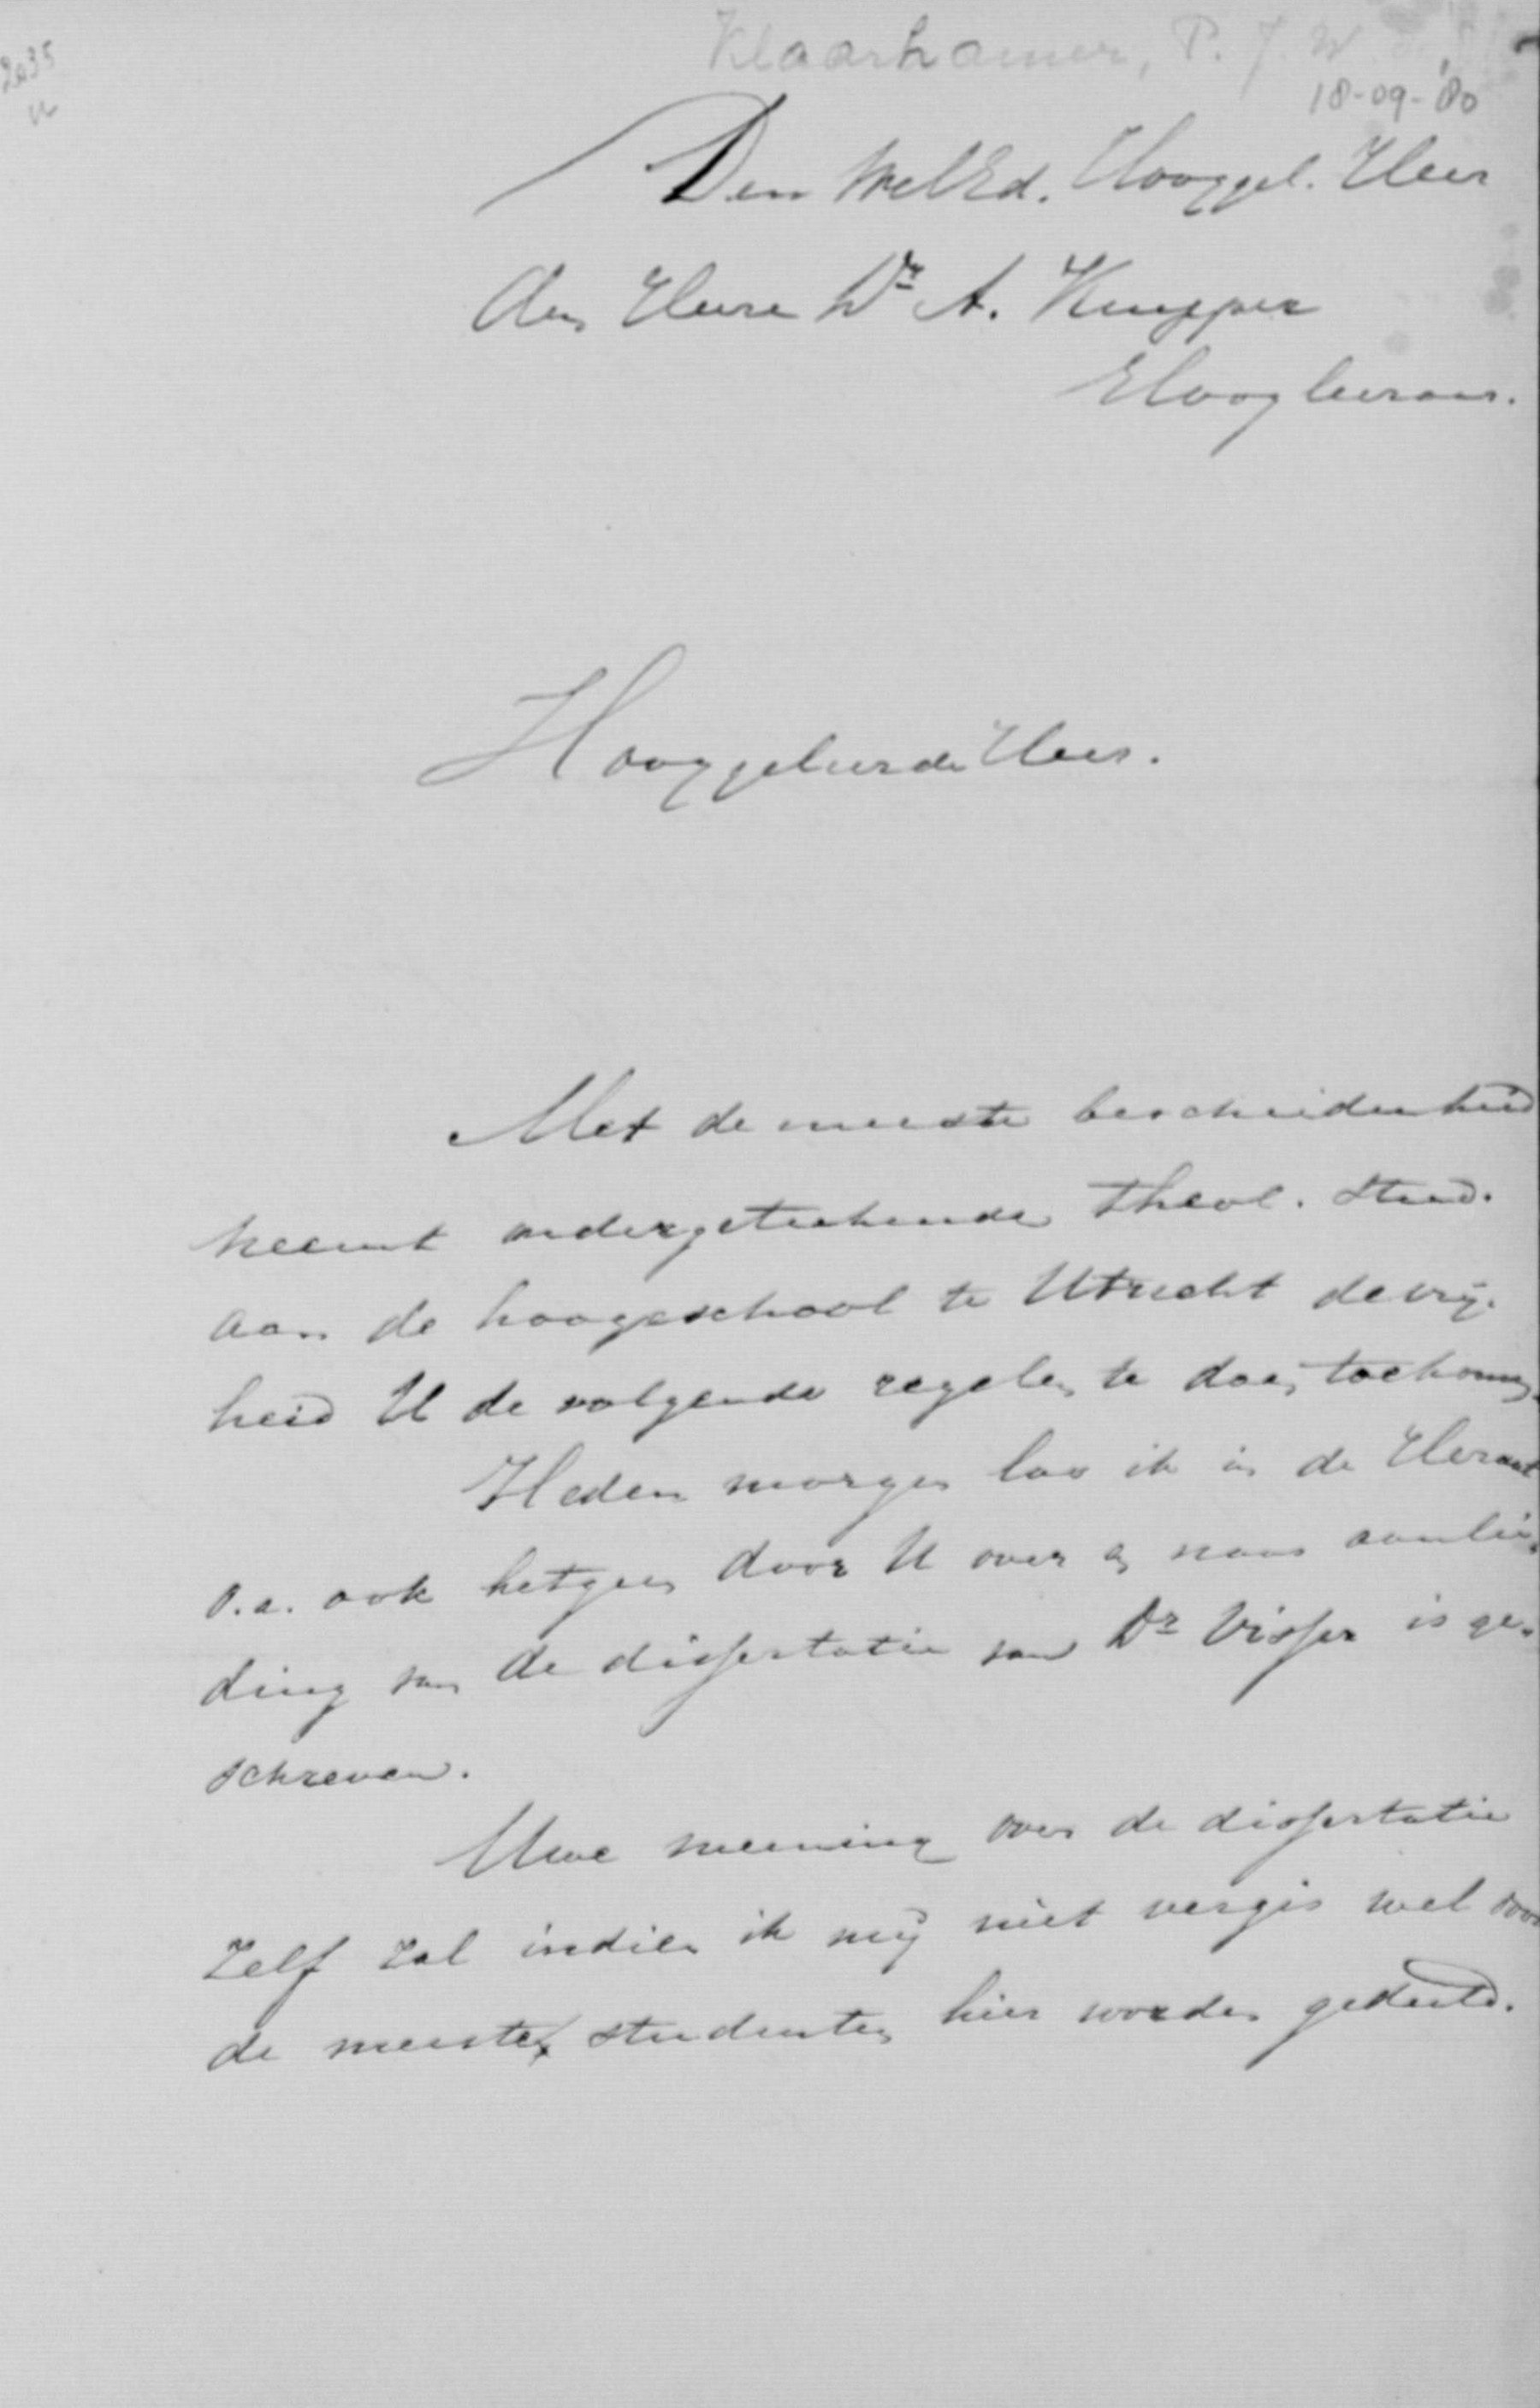 2035
Klaarhamer, P. J. W.
18-09-80
Den WelEd. Hooggel. Heer
den Heere Dr A. Kuyper
Hoogleeraar.
Hooggeleerde Heer.
Met de meeste bescheidenheid
neemt ondergeteekende Theol. Stud.
aan de hoogeschool te Utrecht de vrij-
heid U de volgende regelen te doen toekomen.
Heden morgen las ik in de Heraut
o.a. ook hetgeen door U over en naar aanlei-
ding van de dissertatie van Dr Visser is ge-
schreven.
Uwe meening over de dissertatie
zelf zal indien ik mij niet vergis wel door
de meeste studenten hier worden gedeeld.